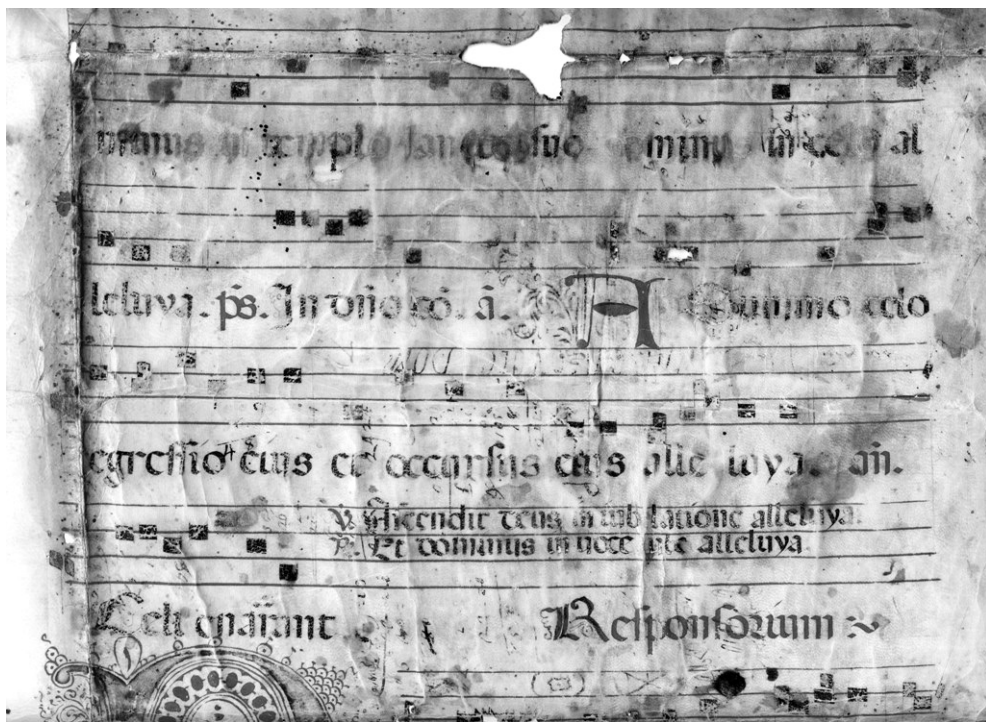 minus in templo sancto suo dominus in celo al
leluya. ps. In dño cõ. ã. A summo celo
egressio eius et occursus eius alle luya. añ.
V. Ascendit deus in iubilatione alleluya.
R. Et dominus in uoce tube alleluya
Celi enarrant Responsorium